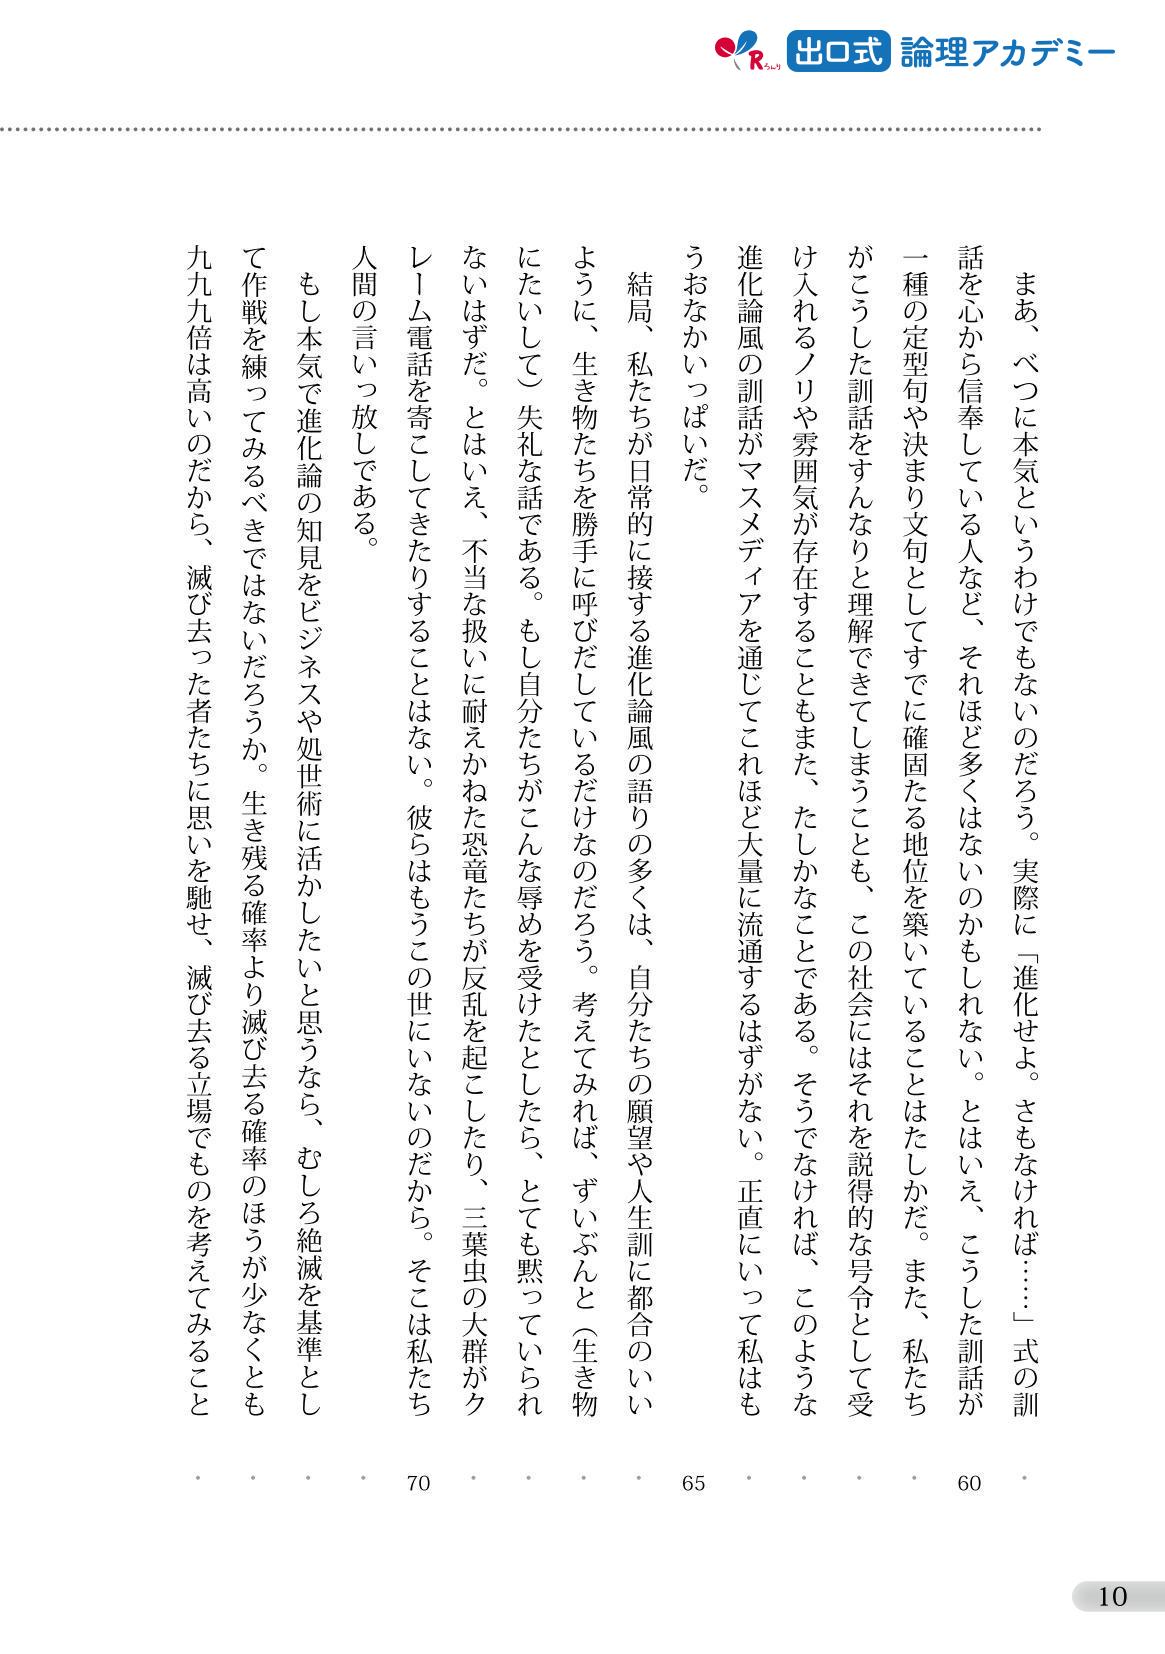 Rろんり 出口式 論理アカデミー
まあ、べつに本気というわけでもないのだろう。実際に「進化せよ。さもなければ……」式の訓
話を心から信奉している人など、それほど多くはないのかもしれない。とはいえ、こうした訓話が
一種の定型句や決まり文句としてすでに確固たる地位を築いていることはたしかだ。また、私たち
がこうした訓話をすんなりと理解できてしまうことも、この社会にはそれを説得的な号令として受
け入れるノリや雰囲気が存在することもまた、たしかなことである。そうでなければ、このような
進化論風の訓話がマスメディアを通じてこれほど大量に流通するはずがない。正直にいって私はも
うおなかいっぱいだ。
結局、私たちが日常的に接する進化論風の語りの多くは、自分たちの願望や人生訓に都合のいい
ように、生き物たちを勝手に呼びだしているだけなのだろう。考えてみれば、ずいぶんと（生き物
にたいして）失礼な話である。もし自分たちがこんな辱めを受けたとしたら、とても黙っていられ
ないはずだ。とはいえ、不当な扱いに耐えかねた恐竜たちが反乱を起こしたり、三葉虫の大群がク
レーム電話を寄こしてきたりすることはない。彼らはもうこの世にいないのだから。そこは私たち
人間の言いっ放しである。
もし本気で進化論の知見をビジネスや処世術に活かしたいと思うなら、むしろ絶滅を基準とし
て作戦を練ってみるべきではないだろうか。生き残る確率より滅び去る確率のほうが少なくとも
九九九倍は高いのだから、滅び去った者たちに思いを馳せ、滅び去る立場でものを考えてみること
60
65
70
10